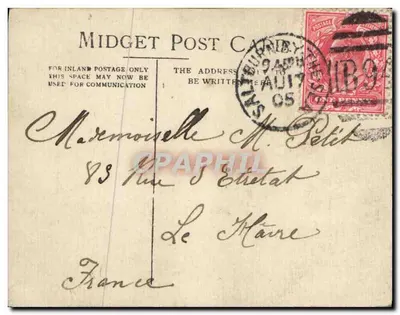 MIDGET POST CA
FOR INLAND POSTAGE ONLY
THIS SPACE MAY NOW BE
USED FOR COMMUNICATION
THE ADDRESS
BE WRITTEN
SALTBURN BY THE SEA
AU 17
05
B9
Mademoiselle M. Petit
83 Rue d'Etretat
Le Hâvre
France
CPAPHIL